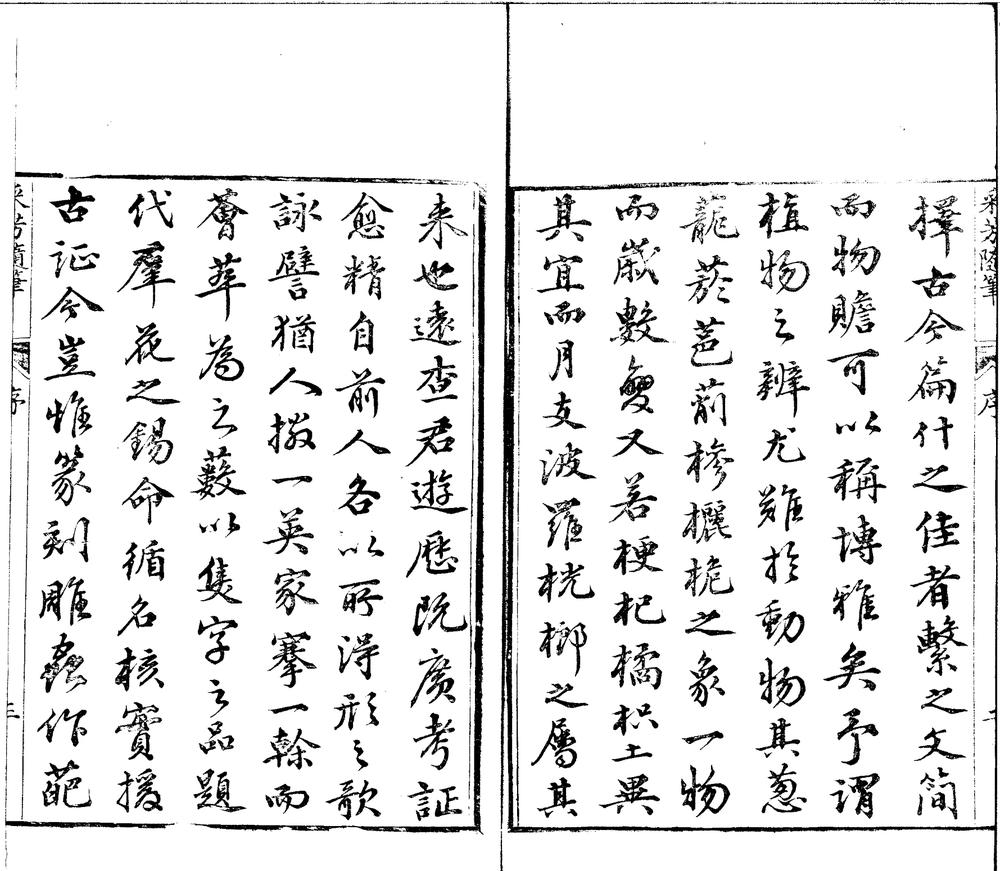 采芳隨筆 序 二
擇古今篇什之佳者繫之文簡
而物贍可以稱博雅矣予謂
植物之辨尤難於動物其蔥
蘢菸芭萷槮欐桅之象一物
而歲數變又若梗杞橘枳土異
其宜而月支波羅桄榔之屬其
来也遠查君遊歷既廣考証
愈精自前人各以所得形之歌
詠譬猶人擷一英家搴一榦而
薈萃為之藪以隻字之品題
代羣花之錫命循名核實援
古証今豈惟篆刻雕蟲作葩
采芳隨筆 序 三